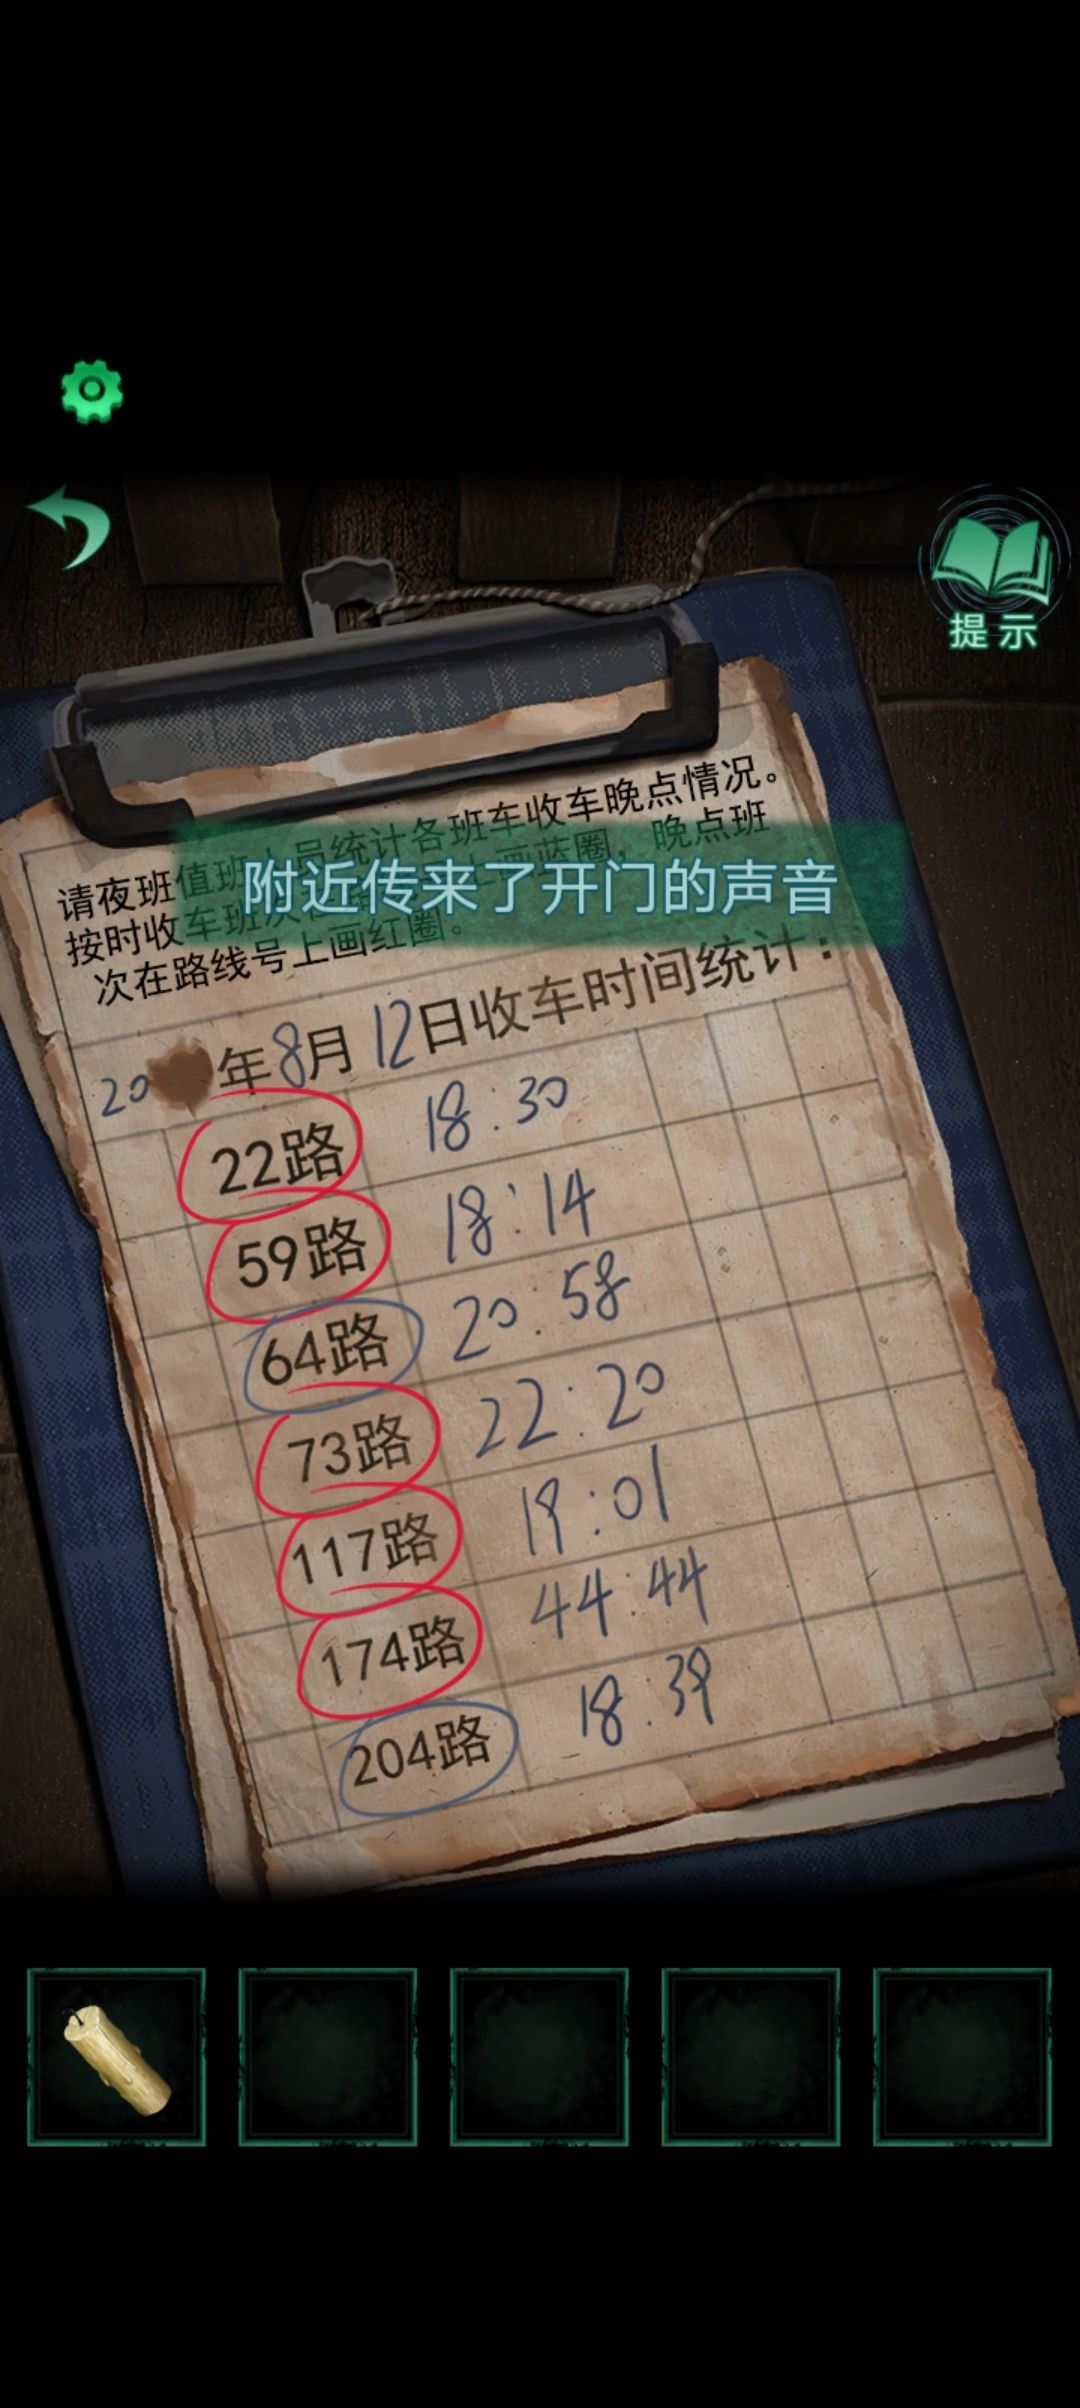 提示
请夜班值班人员统计各班车收车晚点情况。
附近传来了开门的声音
按时收车班次在路线号上画蓝圈，晚点班
次在路线号上画红圈。
20 年8月12日收车时间统计：
22路 18:30
59路 18:14
64路 20:58
73路 22:20
117路 19:01
174路 44:44
204路 18:39